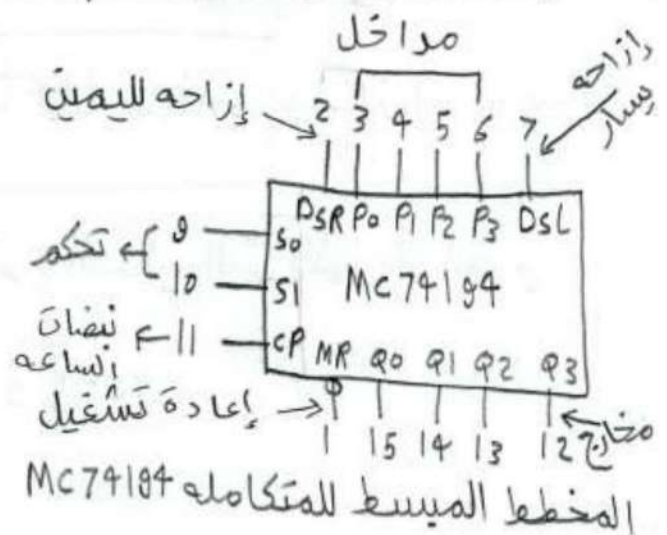 مداخل
إزاحه لليمين
إزاحه يسار
2 3 4 5 6 7
DSR P0 P1 P2 P3 DSL
تحكم
9 S0
10 S1
MC74194
نبضات الساعه
11 CP
MR Q0 Q1 Q2 Q3
إعادة تشغيل
1 15 14 13 12
مخارج
المخطط المبسط للمتكامله MC74194